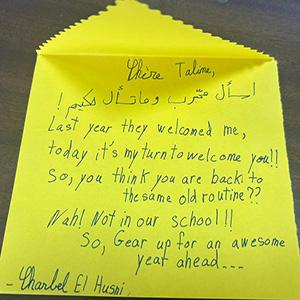 Chère Taline,
اسأل مجّرب وما تسأل حكيم!
Last year they welcomed me,
today it's my turn to welcome you!!
So, you think you are back to
the same old routine??
Nah! Not in our school!!
So, Gear up for an awesome
year ahead---
- Charbel El Husni